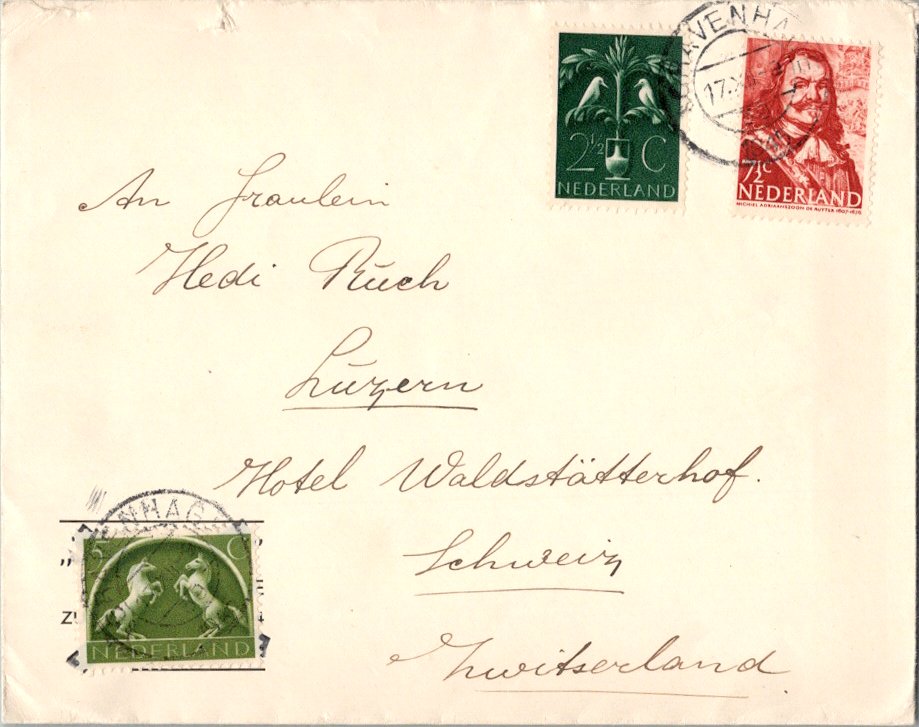 'S GRAVENHA
17.X
2½ C
NEDERLAND
7½ C
NEDERLAND
MICHIEL ADRIAANSZOON DE RUYTER 1607-1676
An Fraulein
Hedi Ruch
Luzern
Hotel Waldstätterhof.
Schweiz
Zwitserland
ENHAG
5 C
NEDERLAND